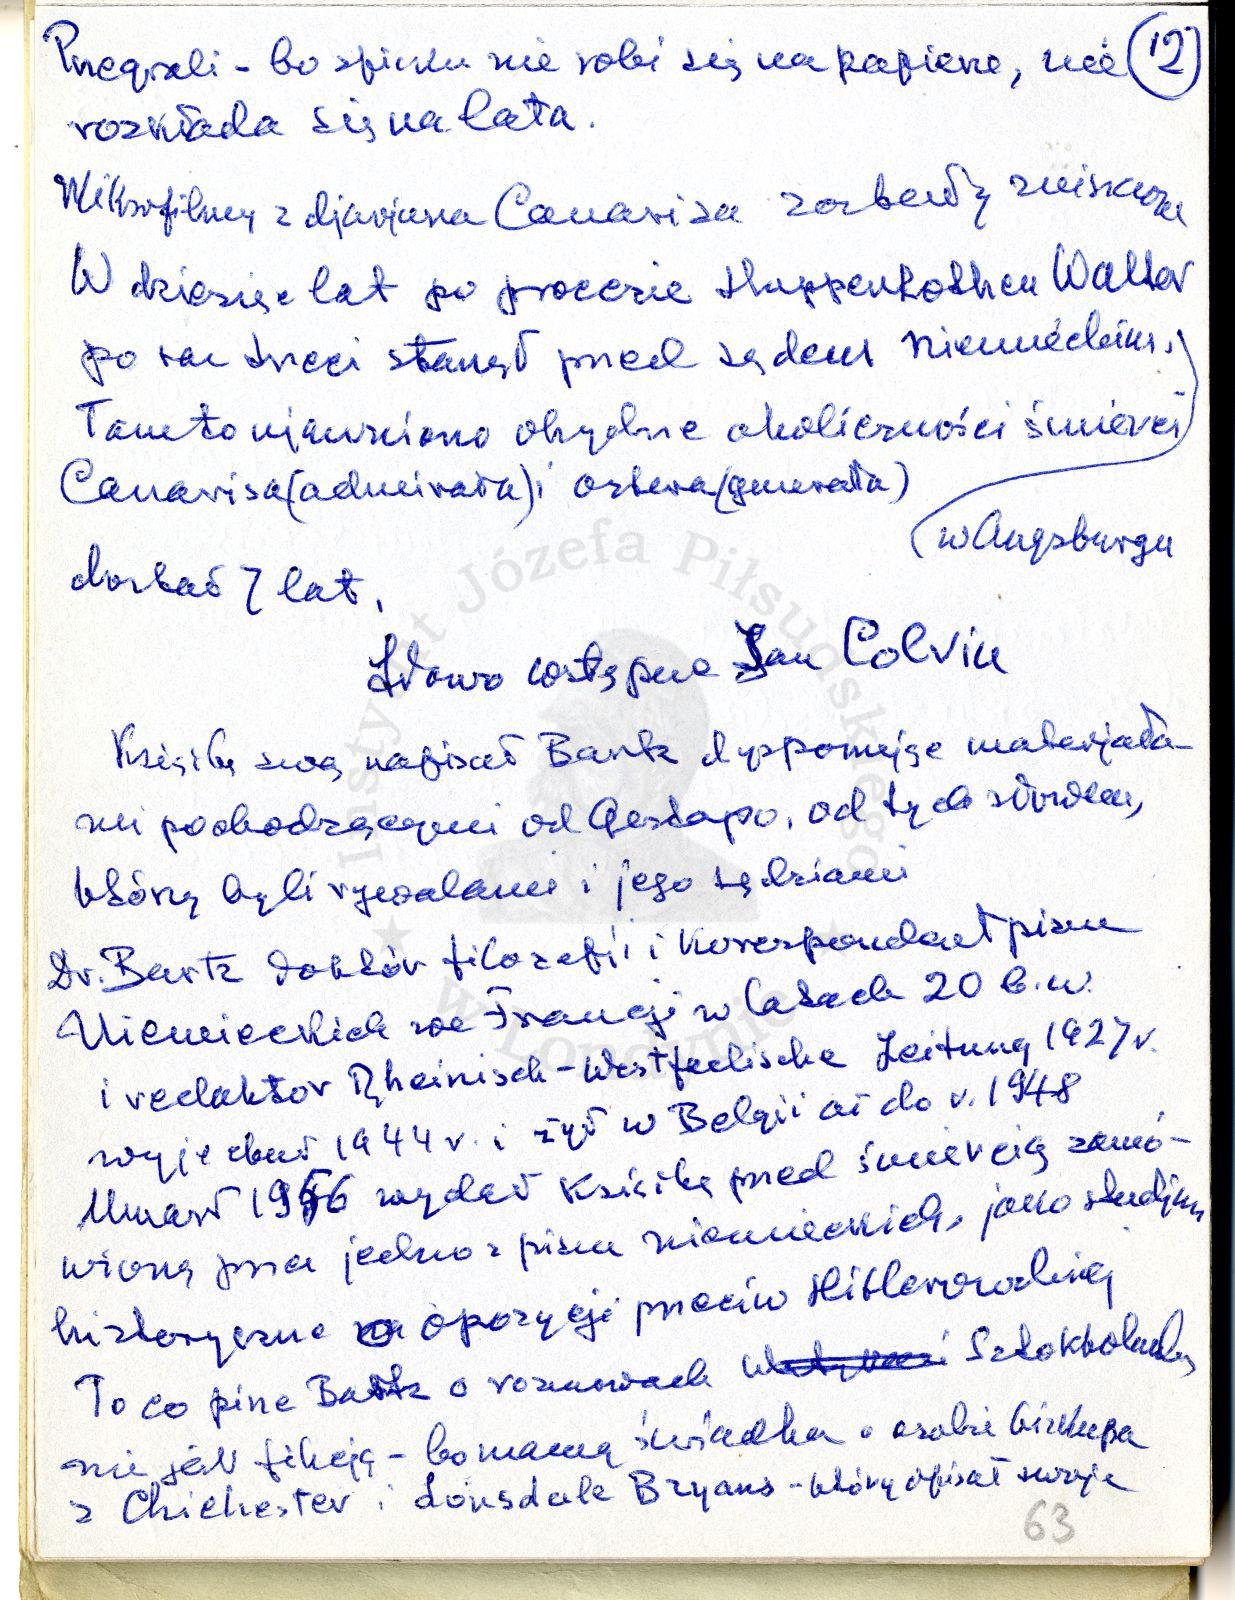 Przegrali - bo spisku nie robi się na papierze, nie (12)
rozkłada się na lata.
Mikrofilmy z djarjusza Canarisa zostały zniszczone
W dziesięć lat po procesie Huppenkothen Walter
po raz trzeci stanął przed sądem niemieckim,
Tam to ujawniono ohydne okoliczności śmierci
Canarisa (admirała) i Ostera (generała)
(w Augsburgu
dostał 7 lat.
Słowo wstępne Jan Colvin
Książkę swą napisał Bartz dysponując materjała-
mi pochodzącymi od Gestapo, od tych słowem,
którzy byli rywalami i jego sędziami
Dr. Bartz doktór filozofii i korespondent pism
Niemieckich we Francji w latach 20 b.w.
i redaktor Rheinisch-Westfälische Zeitung 1927 r.
wyjechał 1944 r. i żył w Belgii aż do r. 1948
Umarł 1956 wydał książkę przed śmiercią zamó-
wioną przez jedno z pism niemieckich, jako studjum
historyczne o opozycji przeciw Hitlerowskiej
To co pisze Bartz o rozmowach Sztokholmskich
nie jest fikcją - bo mamy świadka o osobie biskupa
z Chichester i Lonsdale Bryans - który opisał swoje
63
Instytut Józefa Piłsudskiego
w Londynie